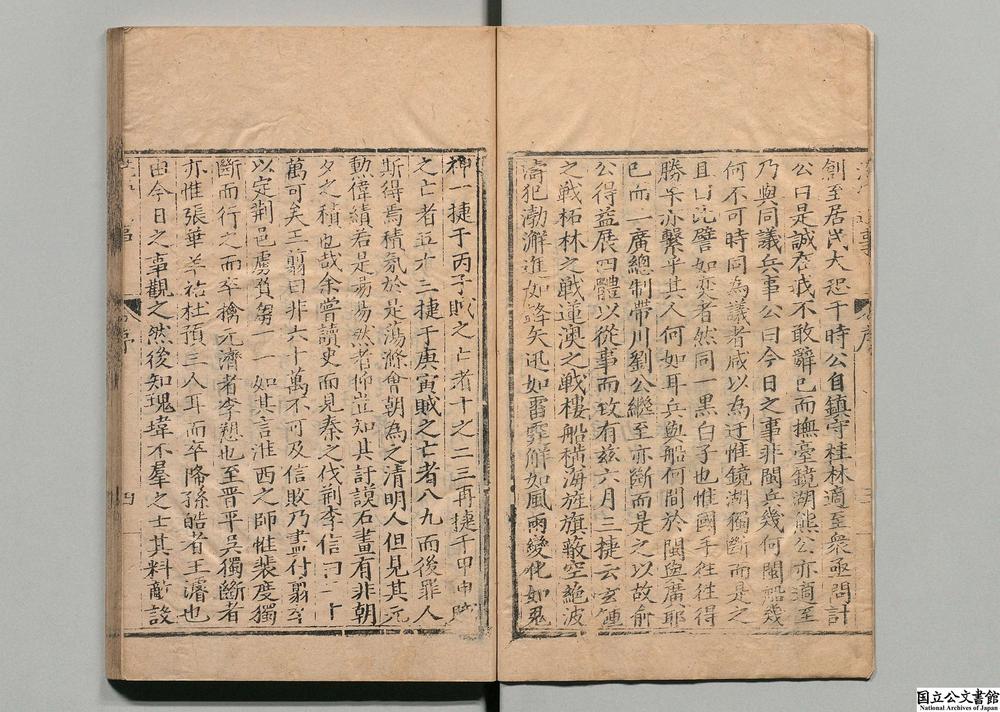 創至居民大恐于時公自鎮守桂林適至衆亟問計
公曰是誠在戎不敢辭已而撫臺鏡湖熊公亦適至
乃與同議兵事公曰今日之事非閩兵幾何閩船幾
何不可時同為議者咸以為迂惟鏡湖獨斷而是之
且曰此譬如奕者然同一黑白子也惟國手徃徃得
勝筭亦繫乎其人何如耳兵與船何間於閩與廣耶
已而一廣總制帶川劉公繼至亦斷而是之以故俞
公得益展四體以從事而致有兹六月三捷云玄鍾
之戰柘林之戰蓮澳之戰樓船橫海旌旗蔽空絶波
濤犯渤澥進如鋒矢迅如雷霆解如風雨變化如鬼
神一捷于丙子賊之亡者十之二三再捷于甲申賊
之亡者五才三捷于庚寅賊之亡者八九而後罪人
斯得焉積氛於是蕩滌會朝為之清明人但見其元
勲偉績若是昜昜然者仰豈知其訏謨石畫有非朝
夕之積也哉余嘗讀史而見秦之伐荊李信曰二十
萬可矣王翦曰非六十萬不可及信敗乃盡付翦卒
以定荆邑虜負芻一如其言淮西之師惟裴度獨
斷而行之而卒擒元濟者李愬也至晋平吳獨斷者
亦惟張華羊祜杜預三人耳而卒降孫皓者王濬也
由今日之事觀之然後知瑰瑋不羣之士其料敵設
序
四
国立公文書館
National Archives of Japan